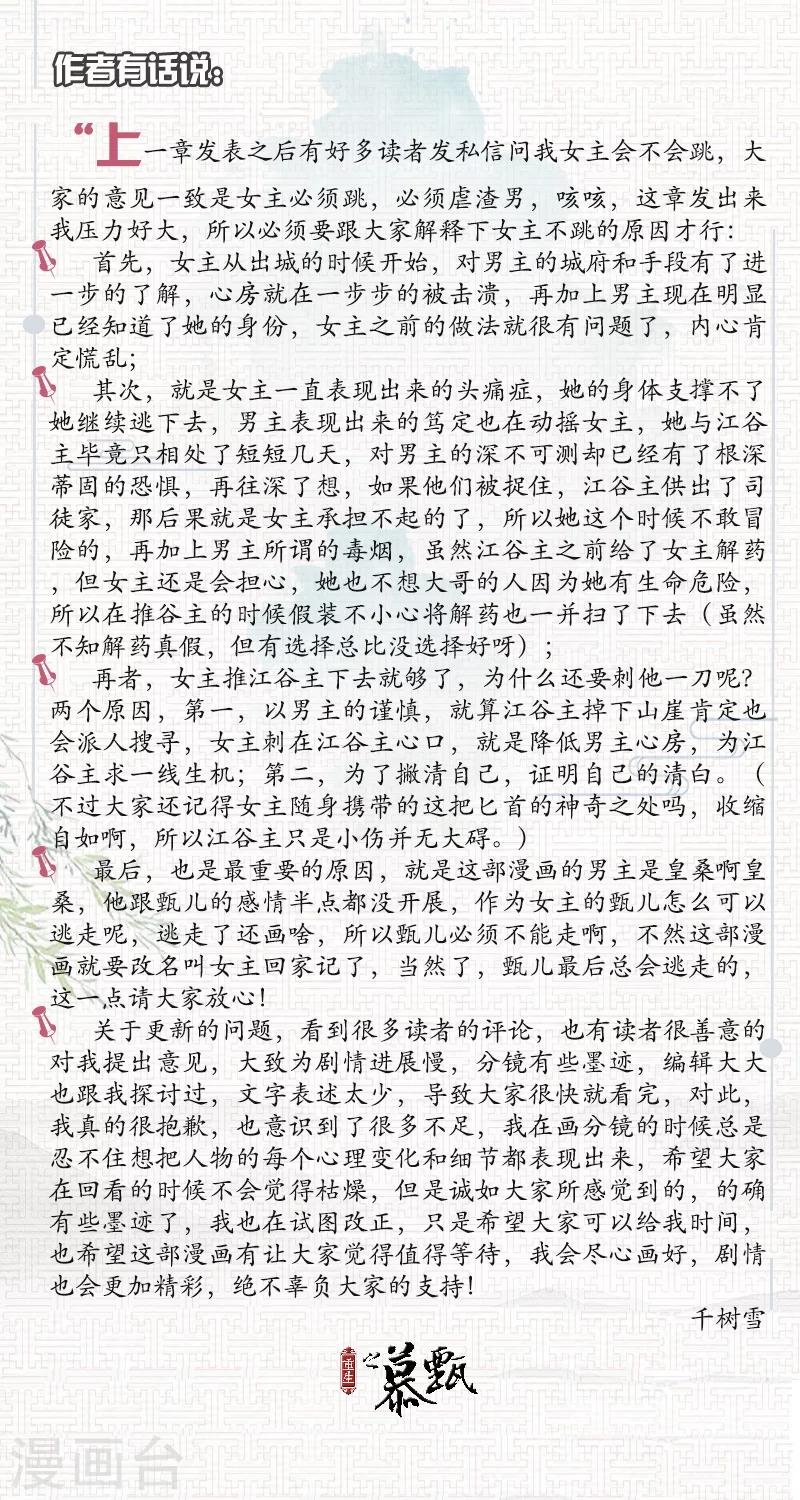 作者有话说:
“上一章发表之后有好多读者发私信问我女主会不会跳，大
家的意见一致是女主必须跳，必须虐渣男，咳咳，这章发出来
我压力好大，所以必须要跟大家解释下女主不跳的原因才行：
首先，女主从出城的时候开始，对男主的城府和手段有了进
一步的了解，心房就在一步步的被击溃，再加上男主现在明显
已经知道了她的身份，女主之前的做法就很有问题了，内心肯
定慌乱；
其次，就是女主一直表现出来的头痛症，她的身体支撑不了
她继续逃下去，男主表现出来的笃定也在动摇女主，她与江谷
主毕竟只相处了短短几天，对男主的深不可测却已经有了根深
蒂固的恐惧，再往深了想，如果他们被捉住，江谷主供出了司
徒家，那后果就是女主承担不起的了，所以她这个时候不敢冒
险的，再加上男主所谓的毒烟，虽然江谷主之前给了女主解药
，但女主还是会担心，她也不想大哥的人因为她有生命危险，
所以在推谷主的时候假装不小心将解药也一并扫了下去（虽然
不知解药真假，但有选择总比没选择好呀）；
再者，女主推江谷主下去就够了，为什么还要刺他一刀呢？
两个原因，第一，以男主的谨慎，就算江谷主掉下山崖肯定也
会派人搜寻，女主刺在江谷主心口，就是降低男主心房，为江
谷主求一线生机；第二，为了撇清自己，证明自己的清白。（
不过大家还记得女主随身携带的这把匕首的神奇之处吗，收缩
自如啊，所以江谷主只是小伤并无大碍。）
最后，也是最重要的原因，就是这部漫画的男主是皇桑啊皇
桑，他跟甄儿的感情半点都没开展，作为女主的甄儿怎么可以
逃走呢，逃走了还画啥，所以甄儿必须不能走啊，不然这部漫
画就要改名叫女主回家记了，当然了，甄儿最后总会逃走的，
这一点请大家放心！
关于更新的问题，看到很多读者的评论，也有读者很善意的
对我提出意见，大致为剧情进展慢，分镜有些墨迹，编辑大大
也跟我探讨过，文字表述太少，导致大家很快就看完，对此，
我真的很抱歉，也意识到了很多不足，我在画分镜的时候总是
忍不住想把人物的每个心理变化和细节都表现出来，希望大家
在回看的时候不会觉得枯燥，但是诚如大家所感觉到的，的确
有些墨迹了，我也在试图改正，只是希望大家可以给我时间，
也希望这部漫画有让大家觉得值得等待，我会尽心画好，剧情
也会更加精彩，绝不辜负大家的支持！
千树雪
重生之慕甄
漫画台